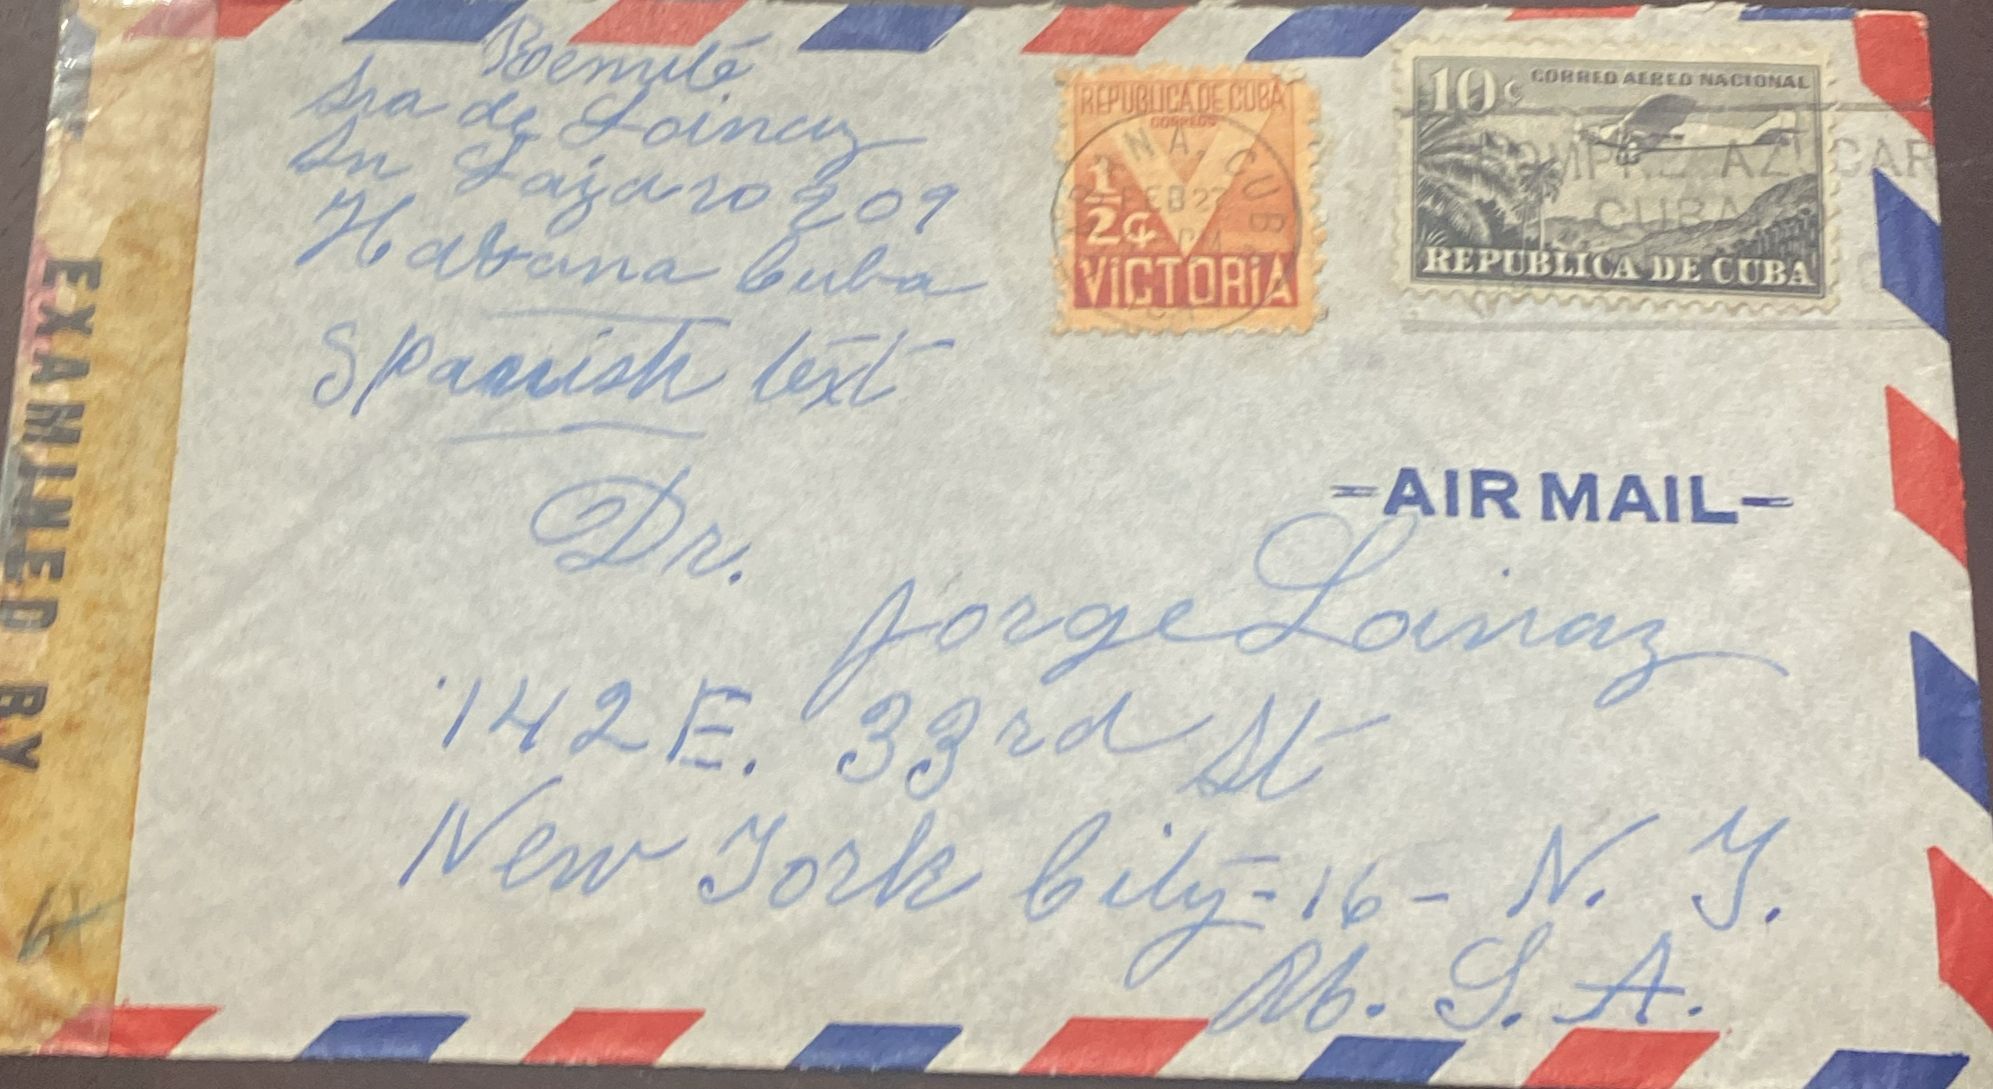 Remite
Sra de Loinaz
Sn Lazaro 209
Habana Cuba
Spanish text
REPUBLICA DE CUBA
CORREOS
1/2 ¢
VICTORIA
FEB 27
CUBA
10 ¢ CORREO AEREO NACIONAL
REPUBLICA DE CUBA
COMPRE AZUCAR
CUBA
-AIR MAIL-
Dr.
Jorge Loinaz
142 E. 33rd St
New York City - 16 - N. Y.
U. S. A.
EXAMINED BY